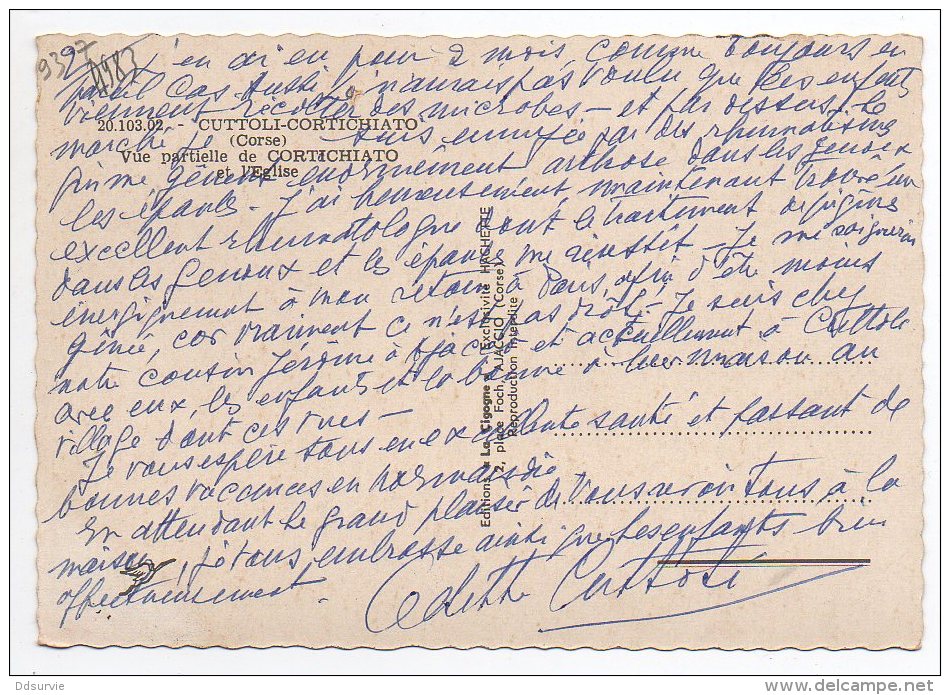 9397
1983
j'en ai eu pour 2 mois comme toujours en
pareil cas aussi je n'aurais pas voulu que les enfants
viennent récolter des microbes - et par dessus le
marché je suis ennuyée par des rhumatismes
qui me gênent énormément arthose dans les genoux
les épaules - J'ai heureusement maintenant trouvé un
excellent rhumatologue dont le traitement
dans les genoux et les épaules me réussit - Je me soignerai
énergiquement à mon retour à Paris, afin d'être moins
gênée, car vraiment ce n'est pas drôle. Je suis chez
notre cousin Jérôme à Ajaccio et actuellement à Cuttoli
avec eux, les enfants et la bonne à leur maison au
village dont ces vues -
Je vous espère tous en excellente santé et passant de
bonnes vacances en Normandie
En attendant le grand plaisir de vous revoir tous à la
maison, je vous embrasse ainsi que les enfants bien
affectueusement.
Odette Cuttoli
20.103.02. - CUTTOLI-CORTICHIATO
(Corse)
Vue partielle de CORTICHIATO
et l'Eglise
Editions « La Cigogne » Exclusivité HACHETTE
2, place Foch, AJACCIO (Corse)
Reproduction Interdite
Ddsurvie
delcampe.net